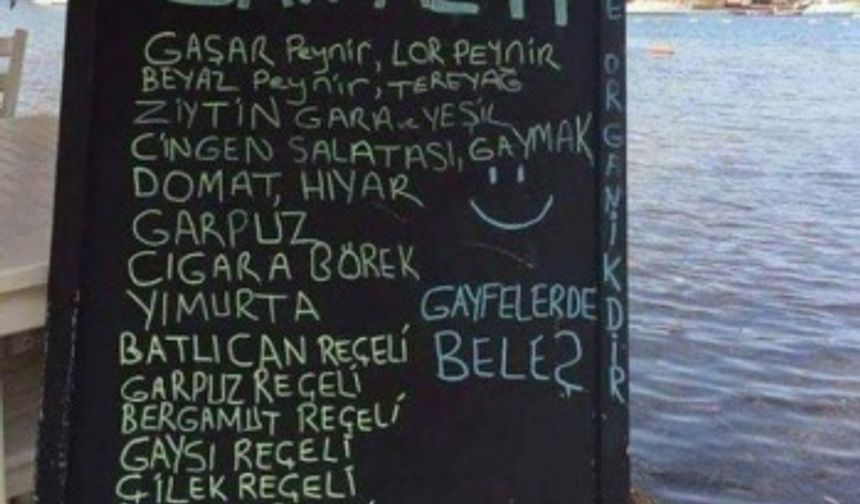 GAŞAR Peynir, LOR PEYNİR
BEYAZ Peynir, TEREYAĞ
ZİYTİN GARA ve YEŞİL
CİNGEN SALATASI, GAYMAK
DOMAT, HIYAR
GARPUZ
CIGARA BÖREK
YIMURTA
GAYFELERDE
BELEŞ
BATLICAN REÇELİ
GARPUZ REÇELİ
BERGAMUT REÇELİ
GAYSI REÇELİ
ÇİLEK REÇELİ
E ORGANİKDİR